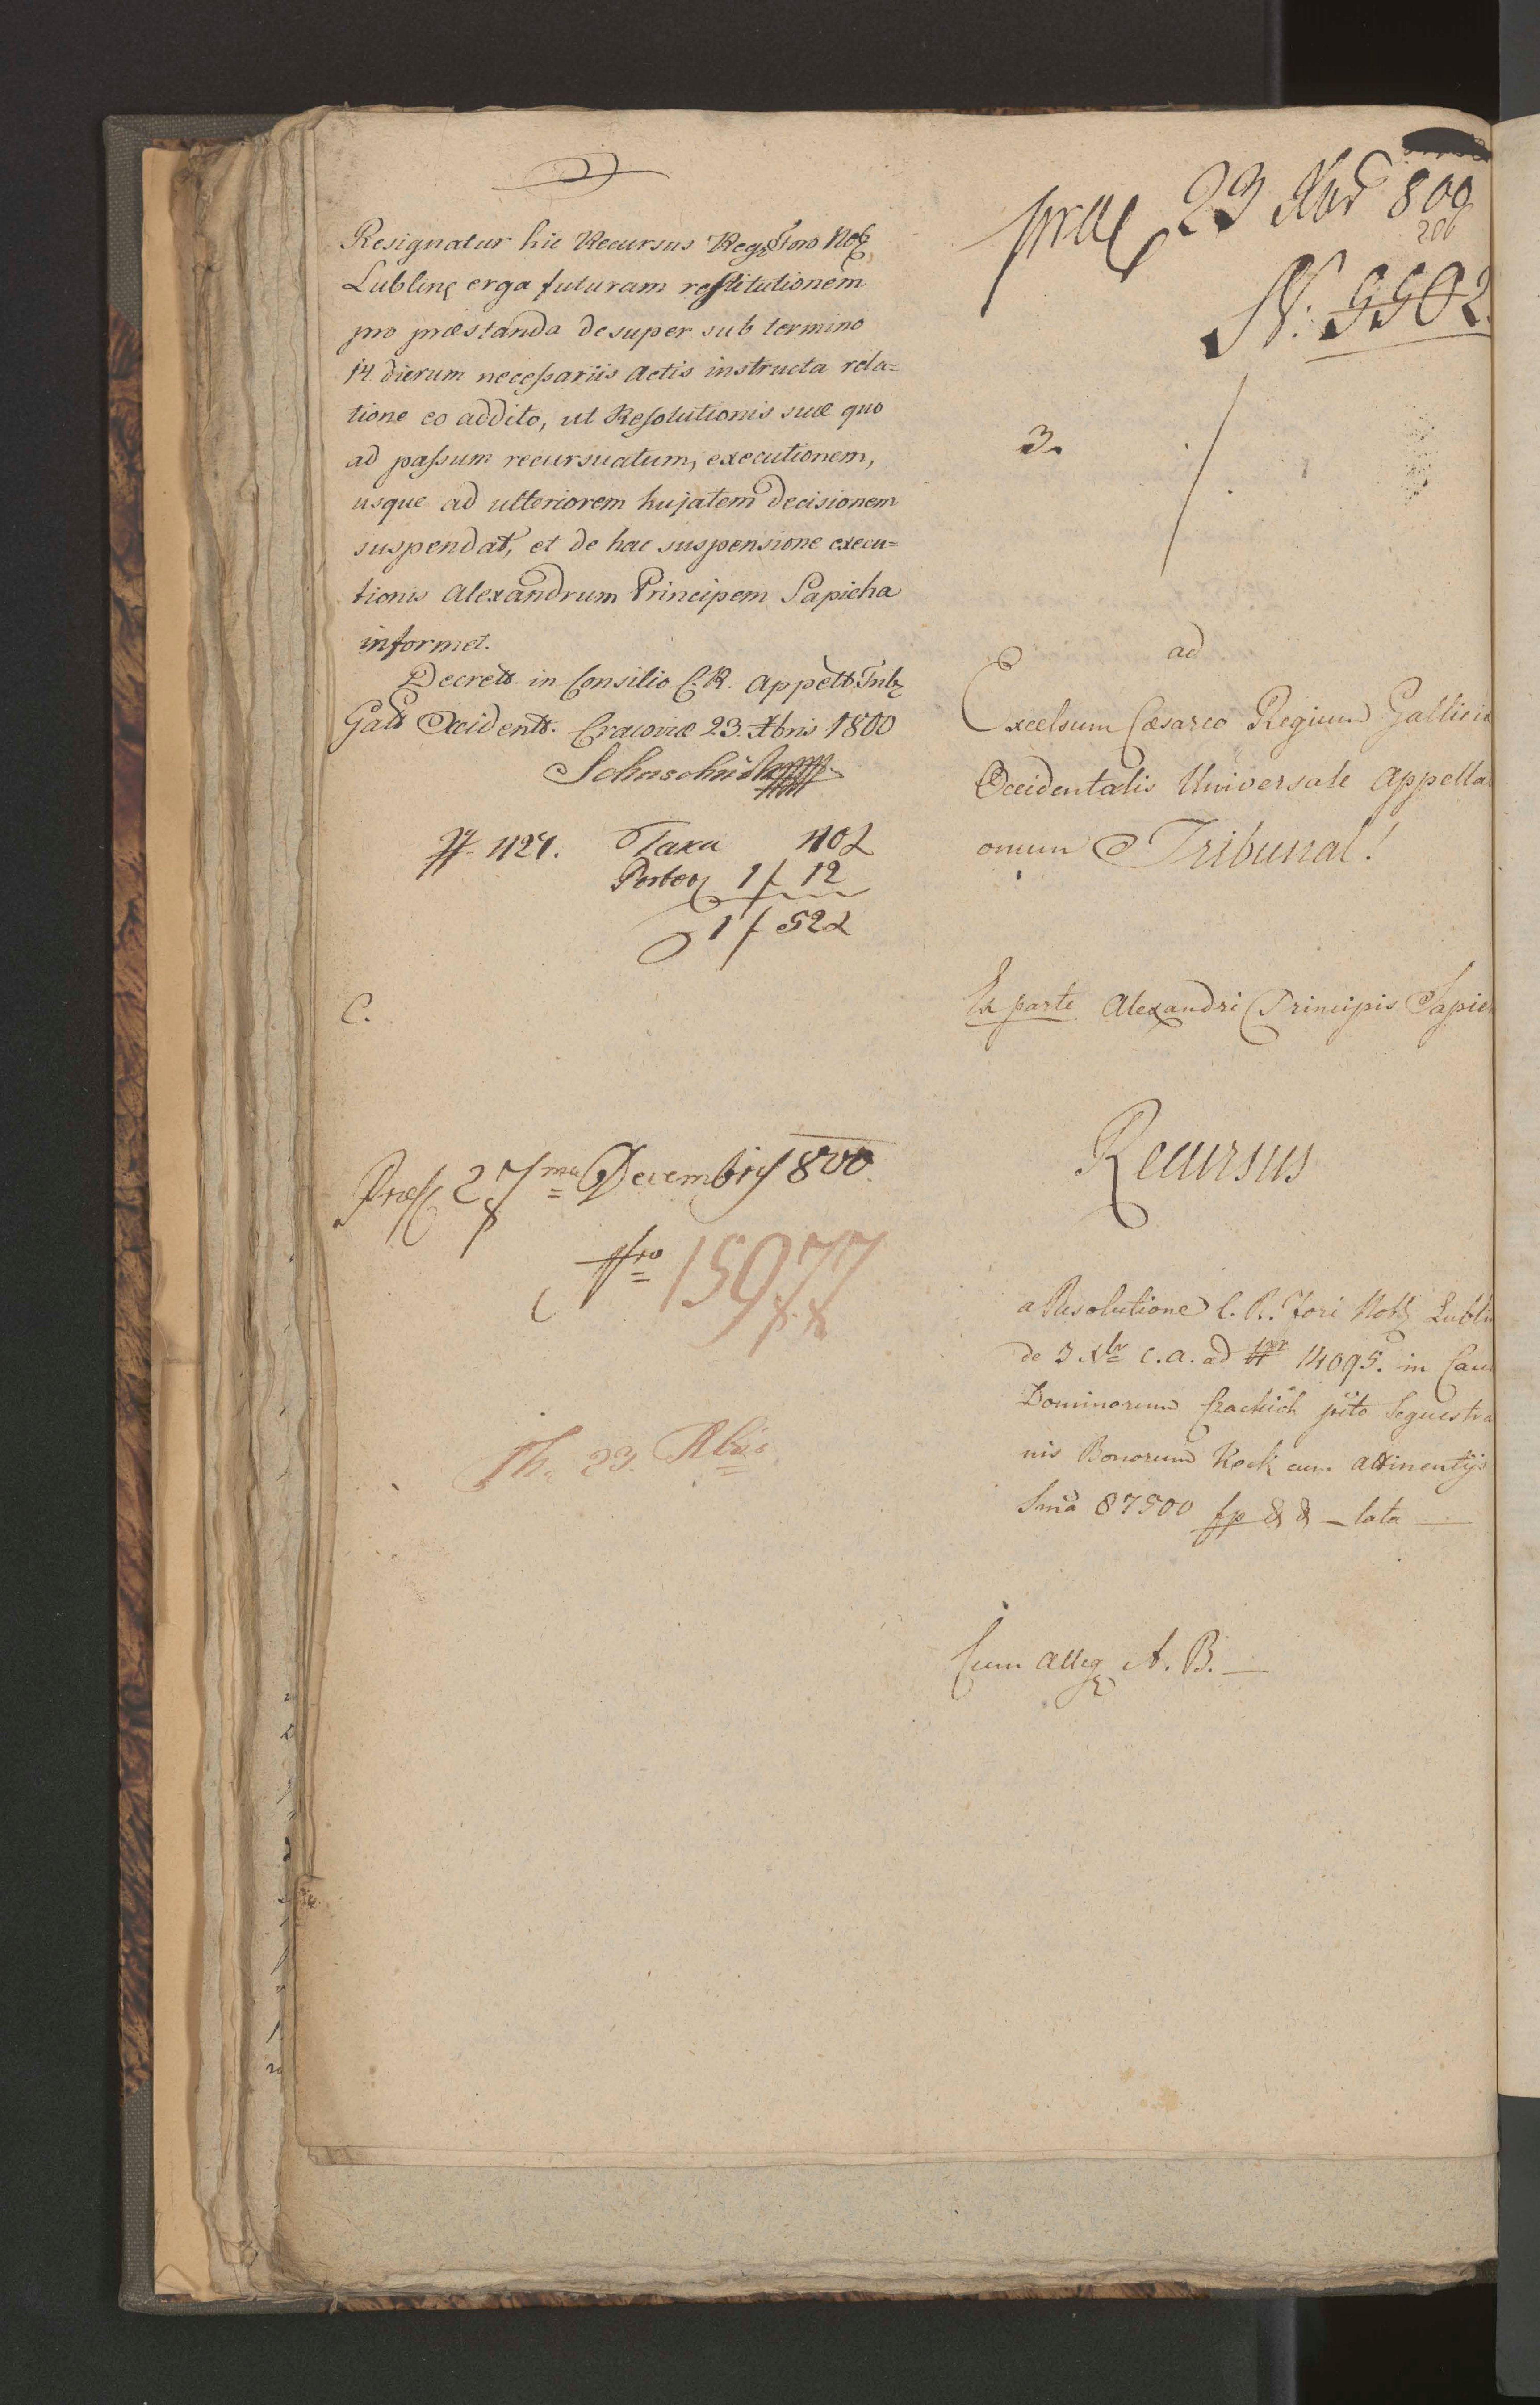 Resignatur hic Recursus Reg. Foro Nob.
Lublin. erga futuram restitutionem
pro præstanda desuper sub termino
14 dierum necessariis Actis instructa rela=
tione eo addito, ut Resolutionis suæ quo
ad passum recursuatum, executionem,
usque ad ulteriorem hujatem decisionem
suspendat, et de hac suspensione execu=
tionis Alexandrum Principem Sapieha
informet.
Decret. in Consilio C. R. Appell. Trib.
Gal. Occident. Cracoviæ 23. Xbris 1800
427. Taxa 40 x
Porto 1 f 12
1 f 52 x
C.
Præs. 27ma Decembris 800.
Nro 15977
23. Xbris
præs 23 Xbr 800
N: 9502
3.
ad
Excelsum Cæsareo Regium Gallicie
Occidentalis Universale Appella
onum Tribunal!
Ex parte Alexandri Principis Sapie
Recursus
a Resolutione C. R. Fori Nob. Lublin
de 3 Xbr c. a. ad 14095. in Cau
Dominorum Czackich pcto Sequestra
nis Bonorum Kock cum attinentijs
Sma 87500 fp & & – lata –
Cum Alleg. A. B. –